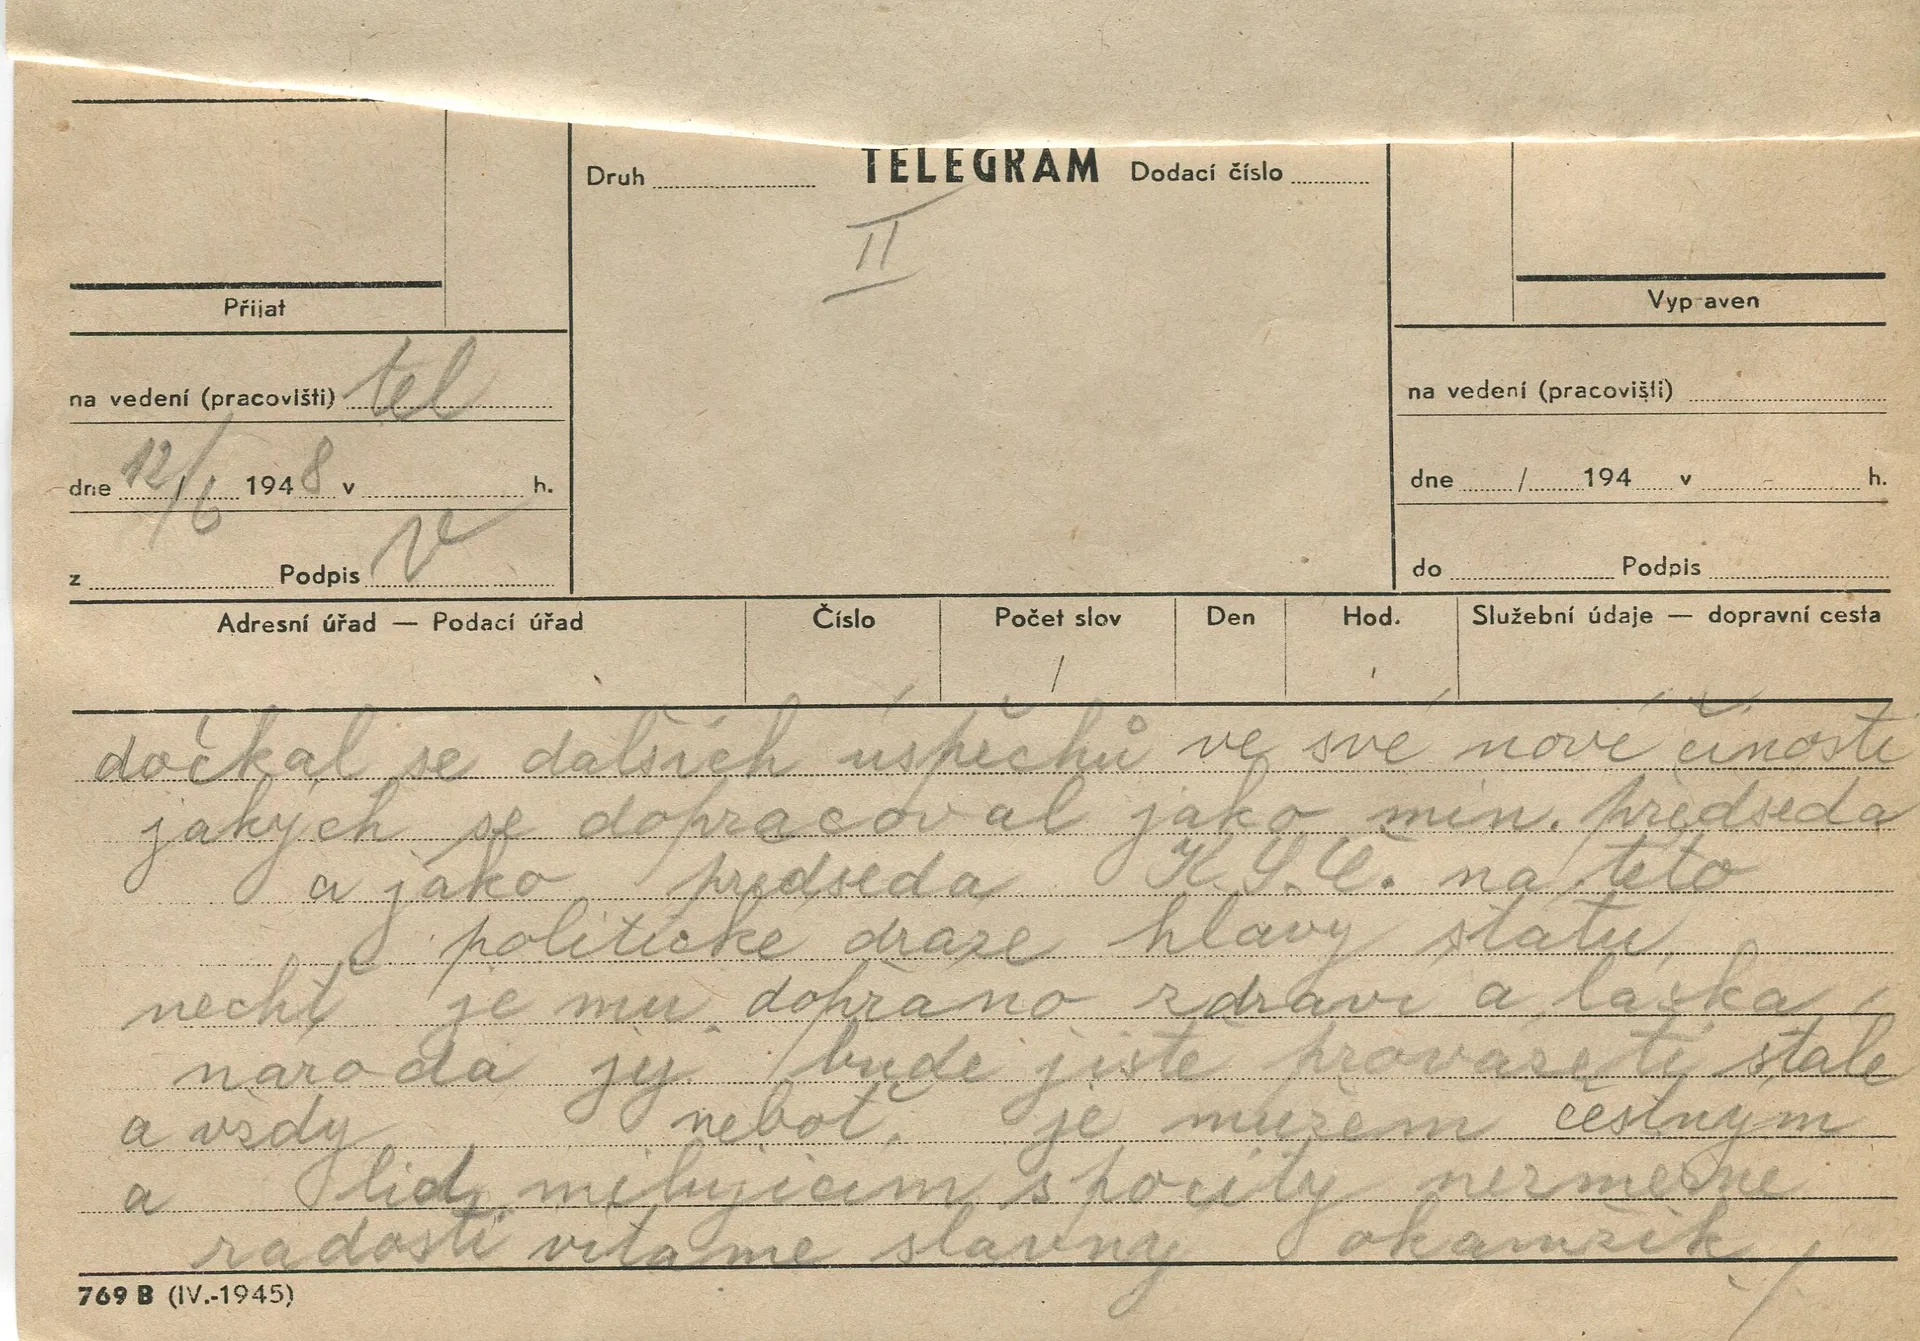 TELEGRAM
Druh
Dodací číslo
II
Přijat
Vypraven
na vedení (pracovišti) tel
na vedení (pracovišti)
dne 12/6 1948 v h.
dne / 194 v h.
z Podpis V
do Podpis
Adresní úřad — Podací úřad Číslo Počet slov Den Hod. Služební údaje — dopravní cesta
dočkal se dalsích úspěchů ve své nové činosti
jakých se dopracoval jako min. předseda
a jako předseda K.S.Č. na teto
politicke draze hlavy statu
nechť je mu dopřano zdravi a laska
naroda jej bude jiste provazeti stale
a vzdy neboť je muzem čestnym
a lid milujicim s pocity nezmerne
radosti vitame slavny okamzik
769 B (IV.-1945)